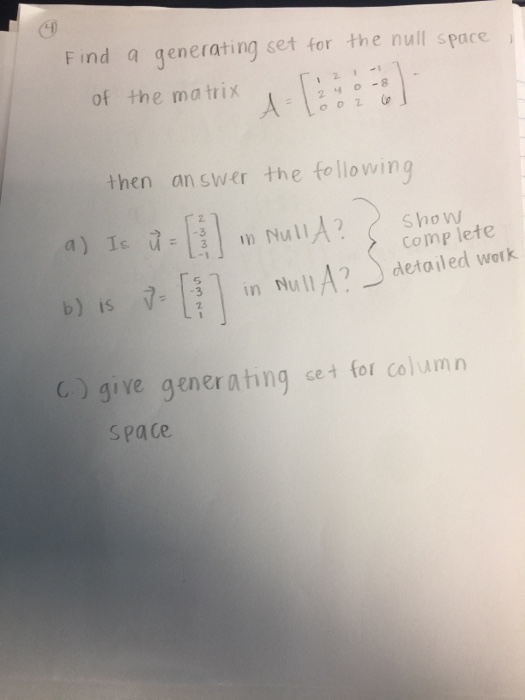 4
Find a generating set for the null space
of the matrix A = [1 2 1 -1
2 4 0 -8
0 0 2 6].
then answer the following
a) Is u⃗ = [2 -3 3 -1] in Null A? } show complete detailed work
b) is v⃗ = [5 -3 2 1] in Null A?
c.) give generating set for column
space